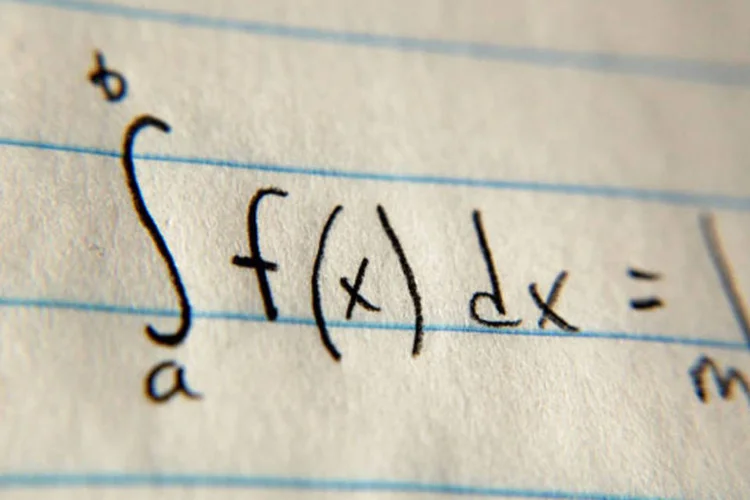 ∫ₐᵇ f(x) dx =